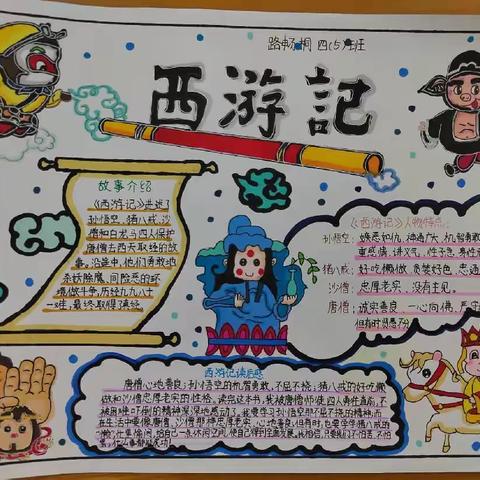 路畅桐 四(5)班
西游記
故事介绍
《西游记》讲述了
孙悟空、猪八戒、沙
僧和白龙马四人保护
唐僧去西天取经的故
事。沿途中，他们勇敢地
杀妖除魔、同险恶的环
境做斗争，历经九九八十
一难，最终取得真经
《西游记》人物特点：
孙悟空：嫉恶如仇，神通广大，机智勇敢
重感情，讲义气，性子急，
猪八戒：好吃懒做，贪婪好色，忠
沙僧：忠厚老实，没有主见。
唐僧：诚实善良，一心向佛，
但有时贤愚不分
西游记读后感
唐僧心地善良；孙悟空的机智勇敢、不屈不挠；猪八戒的好吃懒
做和沙僧忠厚老实的性格。读完这本书，我被唐僧师徒四人勇往直前，不
被困难吓倒的精神深深地感动了。我要学习孙悟空那不屈不挠的精神，而
在生活中要像唐僧、沙僧那样忠厚老实、心地善良，但有时，也要学学猪八戒的